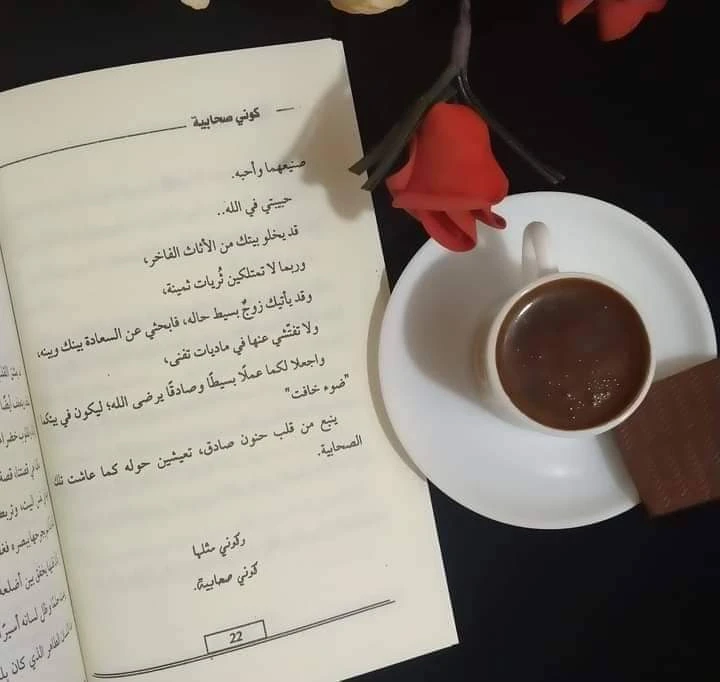 كوني صحابية
صنيعهما وأحبه.
حبيبتي في الله..
قد يخلو بيتك من الأثاث الفاخر،
وربما لا تمتلكين ثُريات ثمينة،
وقد يأتيك زوجٌ بسيط حاله، فابحثي عن السعادة بينك وبينه،
ولا تفتّشي عنها في ماديات تفنى،
واجعلا لكما عملًا بسيطًا وصادقًا يرضى الله؛ ليكون في بيتكما
"ضوء خافت"
ينبع من قلب حنون صادق، تعيشين حوله كما عاشت تلك
الصحابية.
وكوني مثلها
كوني صحابية.
22